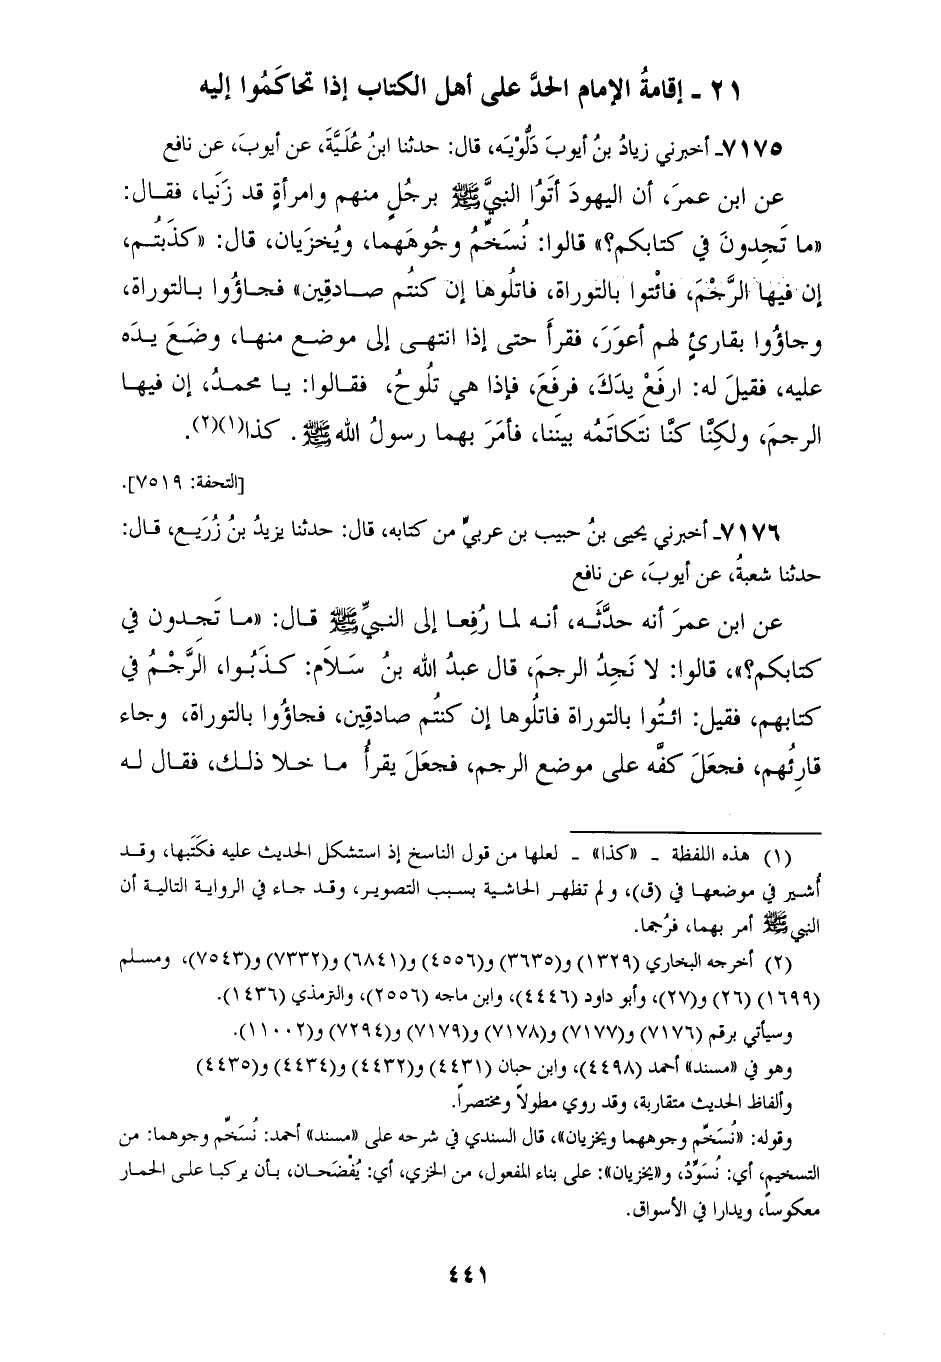 ٢١ ـ إقامةُ الإمام الحدَّ على أهل الكتاب إذا تحاكَمُوا إليه
٧١٧٥ـ أخبرني زيادُ بنُ أيوبَ دَلُّوْيَه، قال: حدثنا ابنُ عُلَيَّةَ، عن أيوبَ، عن نافع
عن ابن عمرَ، أن اليهودَ أتَوُا النبيَّ ﷺ برجُلٍ منهم وامرأةٍ قد زَنَيا، فقال:
«ما تَجِدونَ في كتابكم؟» قالوا: نُسَخِّمُ وجُوهَهما، ويُخزَيان، قال: «كذَبتُم،
إن فيها الرَّجْمَ، فائْتوا بالتوراة، فاتلُوها إن كنتُم صادِقين» فجاؤُوا بالتوراة،
وجاؤُوا بقارئٍ لهم أعوَرَ، فقرأَ حتى إذا انتهى إلى موضع منها، وضَعَ يدَه
عليه، فقيلَ له: ارفَعْ يدَكَ، فرفَعَ، فإذا هي تلُوحُ، فقالوا: يا محمدُ، إن فيها
الرجمَ، ولكِنَّا كنَّا نتَكاتَمُه بينَنا، فأمَرَ بهما رسولُ الله ﷺ. كذا(١)(٢).
[التحفة: ٧٥١٩].
٧١٧٦ـ أخبرني يحيى بنُ حبيب بن عربيٍّ من كتابه، قال: حدثنا يزيدُ بنُ زُرَيع، قال:
حدثنا شعبةُ، عن أيوبَ، عن نافع
عن ابن عمرَ أنه حدَّثَه، أنه لما رُفِعا إلى النبيِّ ﷺ قال: «ما تَجِدون في
كتابكم؟»، قالوا: لا نَجِدُ الرجمَ، قال عبدُ الله بنُ سَلَام: كذَبُوا، الرَّجْمُ في
كتابهم، فقيل: ائتُوا بالتوراة فاتلُوها إن كنتُم صادقِين، فجاؤُوا بالتوراة، وجاء
قارِئُهم، فجعَلَ كفَّه على موضع الرجم، فجعَلَ يقرأُ ما خلا ذلك، فقال له
(١) هذه اللفظة ـ «كذا» ـ لعلها من قول الناسخ إذ استشكل الحديث عليه فكَتَبها، وقد
أُشير في موضعها في (ق)، ولم تظهر الحاشية بسبب التصوير، وقد جاء في الرواية التالية أن
النبي ﷺ أمر بهما، فرُجما.
(٢) أخرجه البخاري (١٣٢٩) و(٣٦٣٥) و(٤٥٥٦) و(٦٨٤١) و(٧٣٣٢) و(٧٥٤٣)، ومسلم
(١٦٩٩) (٢٦) و(٢٧)، وأبو داود (٤٤٤٦)، وابن ماجه (٢٥٥٦)، والترمذي (١٤٣٦).
وسيأتي برقم (٧١٧٦) و(٧١٧٧) و(٧١٧٨) و(٧١٧٩) و(٧٢٩٤) و(١١٠٠٢).
وهو في «مسند» أحمد (٤٤٩٨)، وابن حبان (٤٤٣١) و(٤٤٣٢) و(٤٤٣٤) و(٤٤٣٥)
وألفاظ الحديث متقاربة، وقد روي مطولاً ومختصراً.
وقوله: «نُسَخِّم وجوههما ويخزيان»، قال السندي في شرحه على «مسند» أحمد: نُسَخِّم وجوهما: من
التسخيم، أي: نُسَوِّدُ، و«يخزيان»: على بناء المفعول، من الخزي، أي: يُفْضَحَان، بأن يركبا على الحمار
معكوساً، ويدارا في الأسواق.
٤٤١